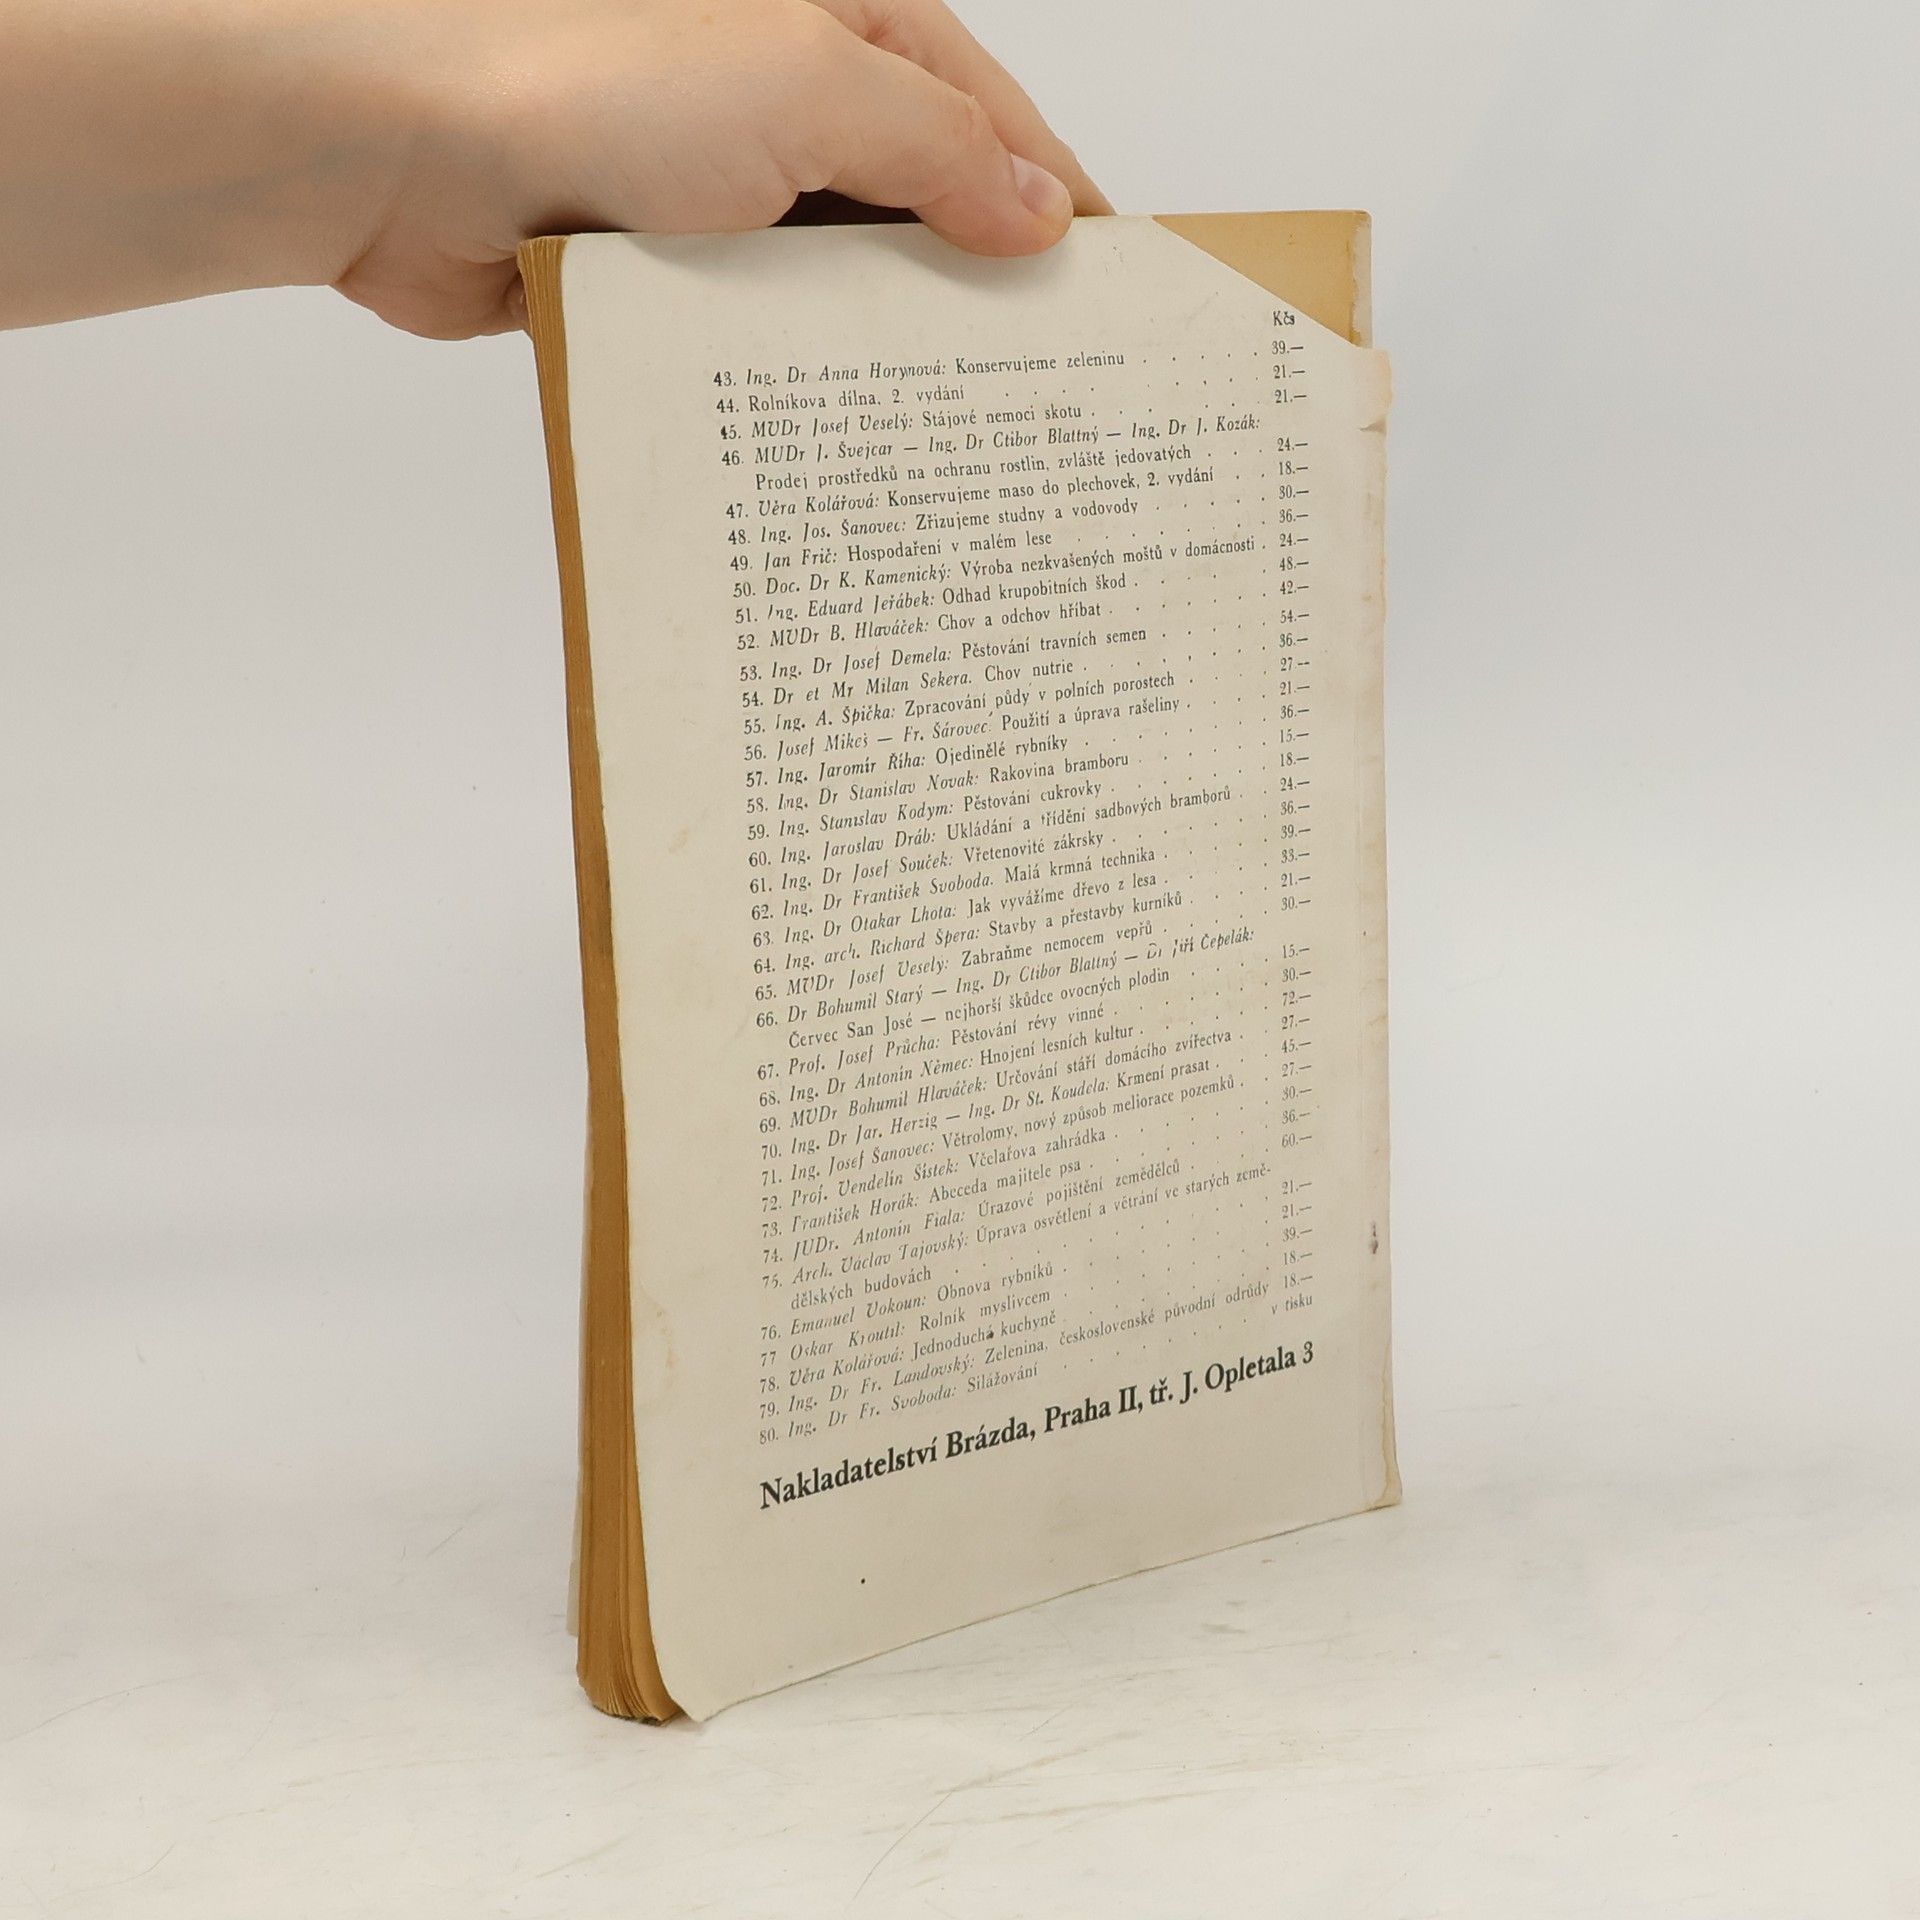 Kčs
43. Ing. Dr Anna Horynová: Konservujeme zeleninu . . . . . 39.—
44. Rolníkova dílna, 2. vydání . . . . . . . 21.—
45. MVDr Josef Veselý: Stájové nemoci skotu . . . . . 21.—
46. MUDr J. Švejcar — Ing. Dr Ctibor Blattný — Ing. Dr J. Kozák:
Prodej prostředků na ochranu rostlin, zvláště jedovatých . . . 24.—
47. Věra Kolářová: Konservujeme maso do plechovek, 2. vydání . . 18.—
48. Ing. Jos. Šanovec: Zřizujeme studny a vodovody . . . . . 30.—
49. Jan Frič: Hospodaření v malém lese . . . . . . . 36.—
50. Doc. Dr K. Kamenický: Výroba nezkvašených moštů v domácnosti . 24.—
51. Ing. Eduard Jeřábek: Odhad krupobitních škod . . . . . 48.—
52. MVDr B. Hlaváček: Chov a odchov hříbat . . . . . . 42.—
53. Ing. Dr Josef Demela: Pěstování travních semen . . . . . 54.—
54. Dr et Mr Milan Sekera. Chov nutrie . . . . . . . 36.—
55. Ing. A. Špička: Zpracování půdy v polních porostech . . . . 27 —
56. Josef Mikeš — Fr. Šárovec: Použití a úprava rašeliny . . . . 21.—
57. Ing. Jaromír Říha: Ojedinělé rybníky . . . . . . . 36.—
58. Ing. Dr Stanislav Novak: Rakovina bramboru . . . . . 15.—
59. Ing. Stanislav Kodym: Pěstování cukrovky . . . . . . 18.—
60. Ing. Jaroslav Dráb: Ukládání a třídění sadbových bramborů . . 24.—
61. Ing. Dr Josef Souček: Vřetenovité zákrsky . . . . . . 36.—
62. Ing. Dr František Svoboda. Malá krmná technika . . . . . 39.—
63. Ing. Dr Otakar Lhota: Jak vyvážíme dřevo z lesa . . . . . 33.—
64. Ing. arch. Richard Špera: Stavby a přestavby kurníků . . . . 21.—
65. MVDr Josef Veselý: Zabraňme nemocem vepřů . . . . . 30.—
66. Dr Bohumil Starý — Ing. Dr Ctibor Blattný — Dr Jiří Čepelák:
Červec San José — nejhorší škůdce ovocných plodin . . . . 15.—
67. Prof. Josef Průcha: Pěstování révy vinné . . . . . . 30.—
68. Ing. Dr Antonín Němec: Hnojení lesních kultur . . . . . 72.—
69. MVDr Bohumil Hlaváček: Určování stáří domácího zvířectva . . 27.—
70. Ing. Dr Jar. Herzig — Ing. Dr St. Koudela: Krmení prasat . . . 45.—
71. Ing. Josef Šanovec: Větrolomy, nový způsob meliorace pozemků . . 27.—
72. Prof. Vendelín Šístek: Včelařova zahrádka . . . . . . 30.—
73. František Horák: Abeceda majitele psa . . . . . . . 36.—
74. JUDr. Antonín Fiala: Úrazové pojištění zemědělců . . . . 60.—
75. Arch. Václav Tajovský: Úprava osvětlení a větrání ve starých země-
dělských budovách . . . . . . . . . . 21.—
76. Emanuel Vokoun: Obnova rybníků . . . . . . . 21.—
77 Oskar Kroutil: Rolník myslivcem . . . . . . . 39.—
78. Věra Kolářová: Jednoduchá kuchyně . . . . . . . 18.—
79. Ing. Dr Fr. Landovský: Zelenina, československé původní odrůdy 18.—
80. Ing. Dr Fr. Svoboda: Silážování . . . . . . . v tisku
Nakladatelství Brázda, Praha II, tř. J. Opletala 3